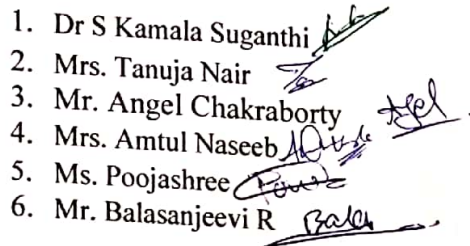 1. Dr S Kamala Suganthi
2. Mrs. Tanuja Nair
3. Mr. Angel Chakraborty
4. Mrs. Amtul Naseeb
5. Ms. Poojashree
6. Mr. Balasanjeevi R